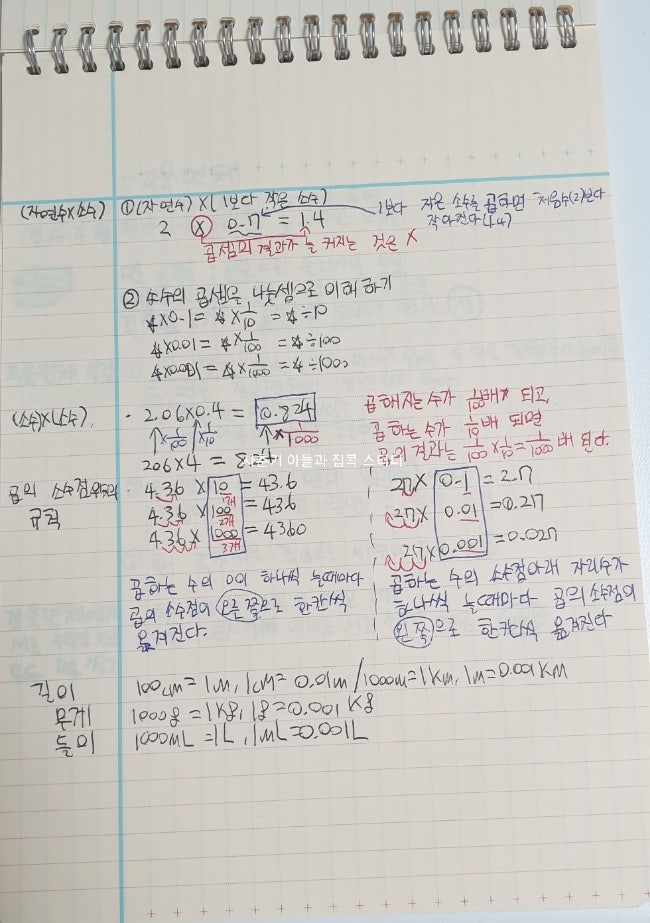 (자연수×소수) ①(자연수)×(1보다 작은 소수)
2 × 0.7 = 1.4
1보다 작은 소수를 곱하면 처음수(2)보다
작아진다(1.4)
곱셈의 결과가 늘 커지는 것은 X
② 소수의 곱셈을 나눗셈으로 이해하기
4×0.1= 4×1/10 = 4÷10
4×0.01= 4×1/100 = 4÷100
4×0.001= 4×1/1000 = 4÷1000
(소수)×(소수). · 2.06×0.4 = 0.824
↑×1/100 ↑×1/10 ↑×1/1000
206×4 = 8
곱해지는 수가 1/100배 되고,
곱하는 수가 1/10배 되면
곱의 결과는 1/100×1/10=1/1000배 된다.
사춘기 아들과 집콕 스터디
곱의 소수점위치의
규칙
4.36 × 10 = 43.6
1개
4.36 × 100 = 436
2개
4.36 × 1000 = 4360
3개
곱하는 수의 0이 하나씩 늘때마다
곱의 소수점이 오른쪽으로 한칸씩
옮겨진다.
27× 0.1 = 2.7
27× 0.01 =0.27
27×0.001 =0.027
곱하는 수의 소수점아래 자리수가
하나씩 늘때마다 곱의 소수점이
왼쪽으로 한칸씩 옮겨진다
길이 100cm=1m, 1cm=0.01m/1000m=1km, 1m=0.001KM
무게 1000g=1kg, 1g=0.001kg
들이 1000mL=1L, 1mL=0.001L